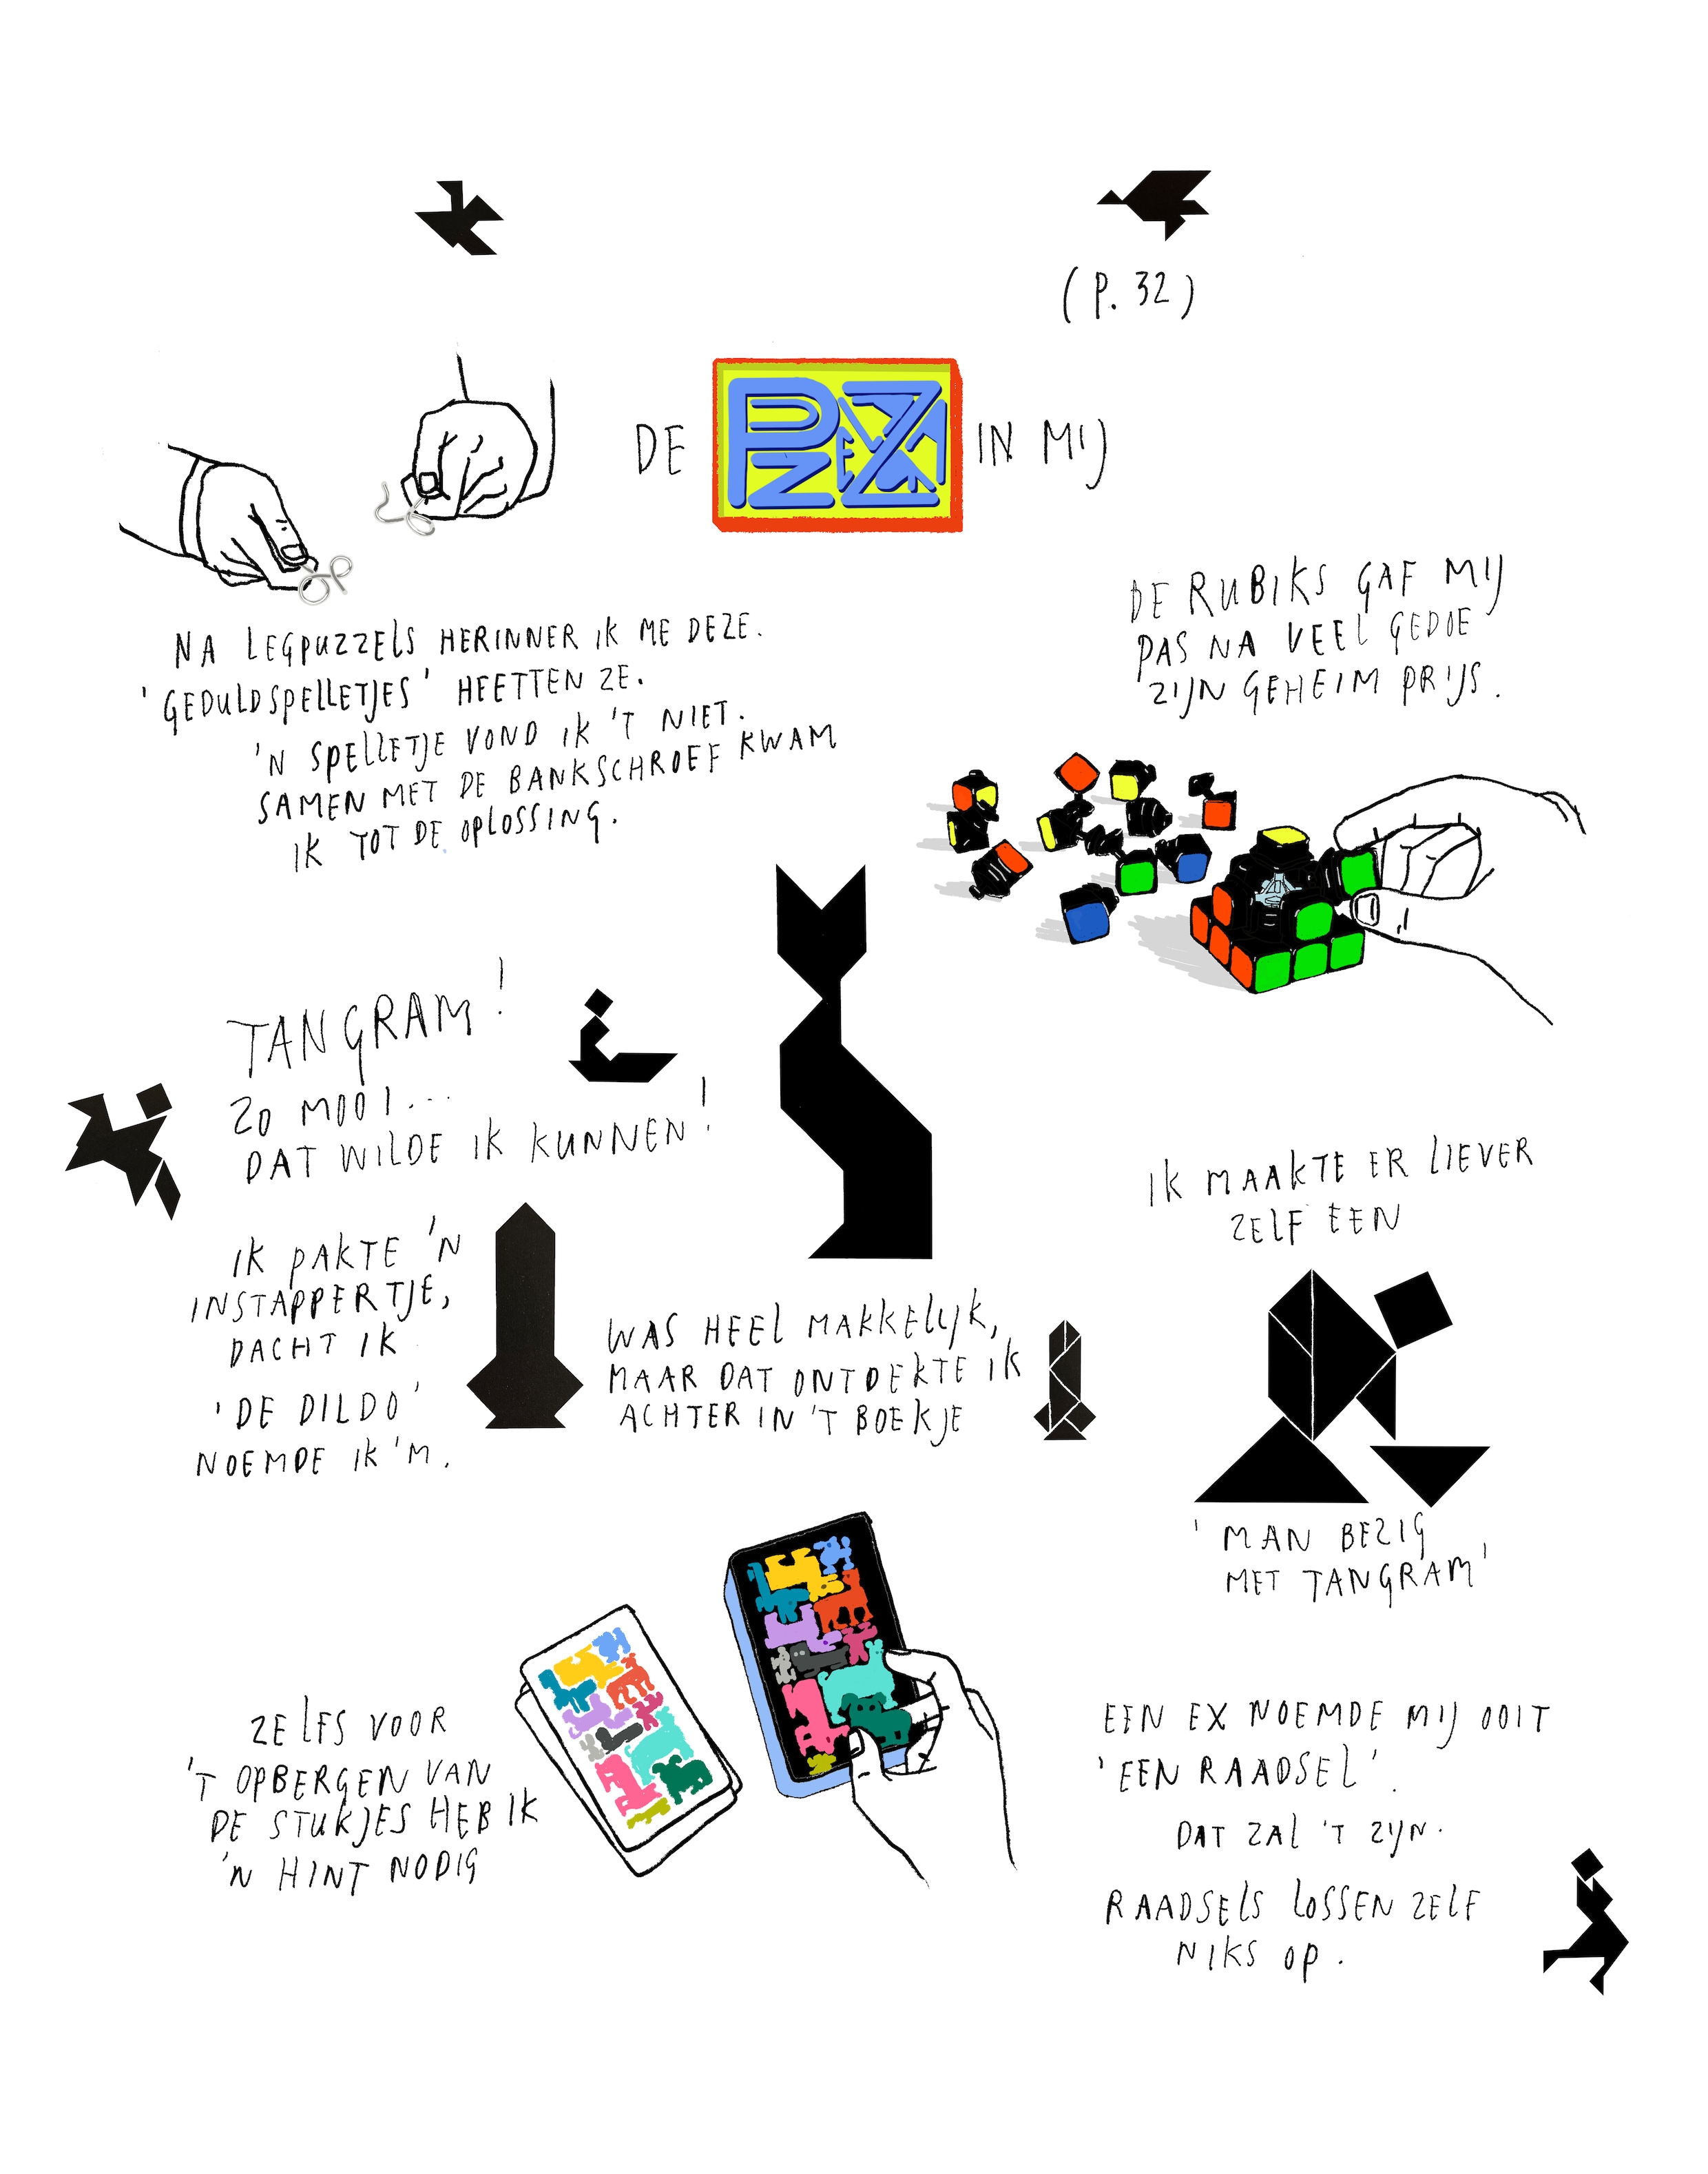 (P. 32)
DE PUZZELAAR IN MIJ
NA LEGPUZZELS HERINNER IK ME DEZE.
'GEDULDSPELLETJES' HEETTEN ZE.
'N SPELLETJE VOND IK 'T NIET.
SAMEN MET DE BANKSCHROEF KWAM
IK TOT DE OPLOSSING.
DE RUBIKS GAF MIJ
PAS NA VEEL GEDOE
ZIJN GEHEIM PRIJS.
TANGRAM!
ZO MOOI...
DAT WILDE IK KUNNEN!
IK PAKTE 'N
INSTAPPERTJE,
DACHT IK
'DE DILDO'
NOEMDE IK 'M.
WAS HEEL MAKKELIJK,
MAAR DAT ONTDEKTE IK
ACHTER IN 'T BOEKJE
IK MAAKTE ER LIEVER
ZELF EEN
'MAN BEZIG
MET TANGRAM'
ZELFS VOOR
'T OPBERGEN VAN
DE STUKJES HEB IK
'N HINT NODIG
EEN EX NOEMDE MIJ OOIT
'EEN RAADSEL'.
DAT ZAL 'T ZIJN.
RAADSELS LOSSEN ZELF
NIKS OP.